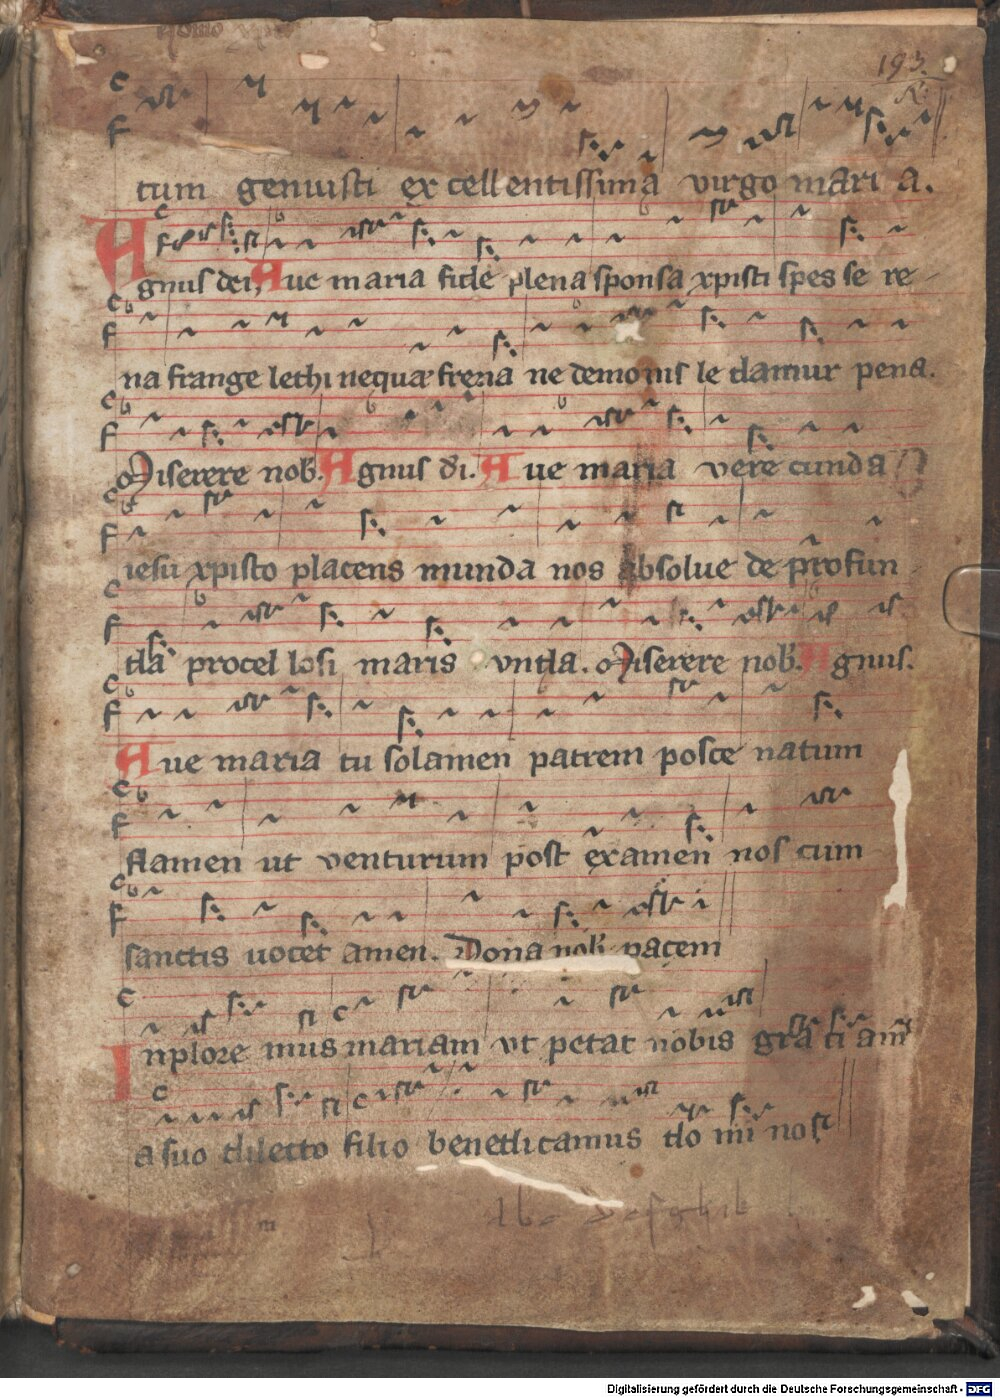 193
tum genuisti excellentissima virgo maria.
Agnus dei, Aue maria fide plena sponsa xpisti spes se re
na frange lethi nequa frena ne demonis le damur pena.
Miserere nob. Agnus di. Aue maria verecunda
iesu xpisto placens munda nos absolue de profun
da procellosi maris vnda. Miserere nob. Agnus.
Aue maria tu solamen patrem posce natum
flamen ut venturum post examen nos cum
sanctis uocet amen. Dona nob pacem
Inploremus mariam vt petat nobis gratiam
a suo dilecto filio benedicamus domino
Digitalisierung gefördert durch die Deutsche Forschungsgemeinschaft - DFG